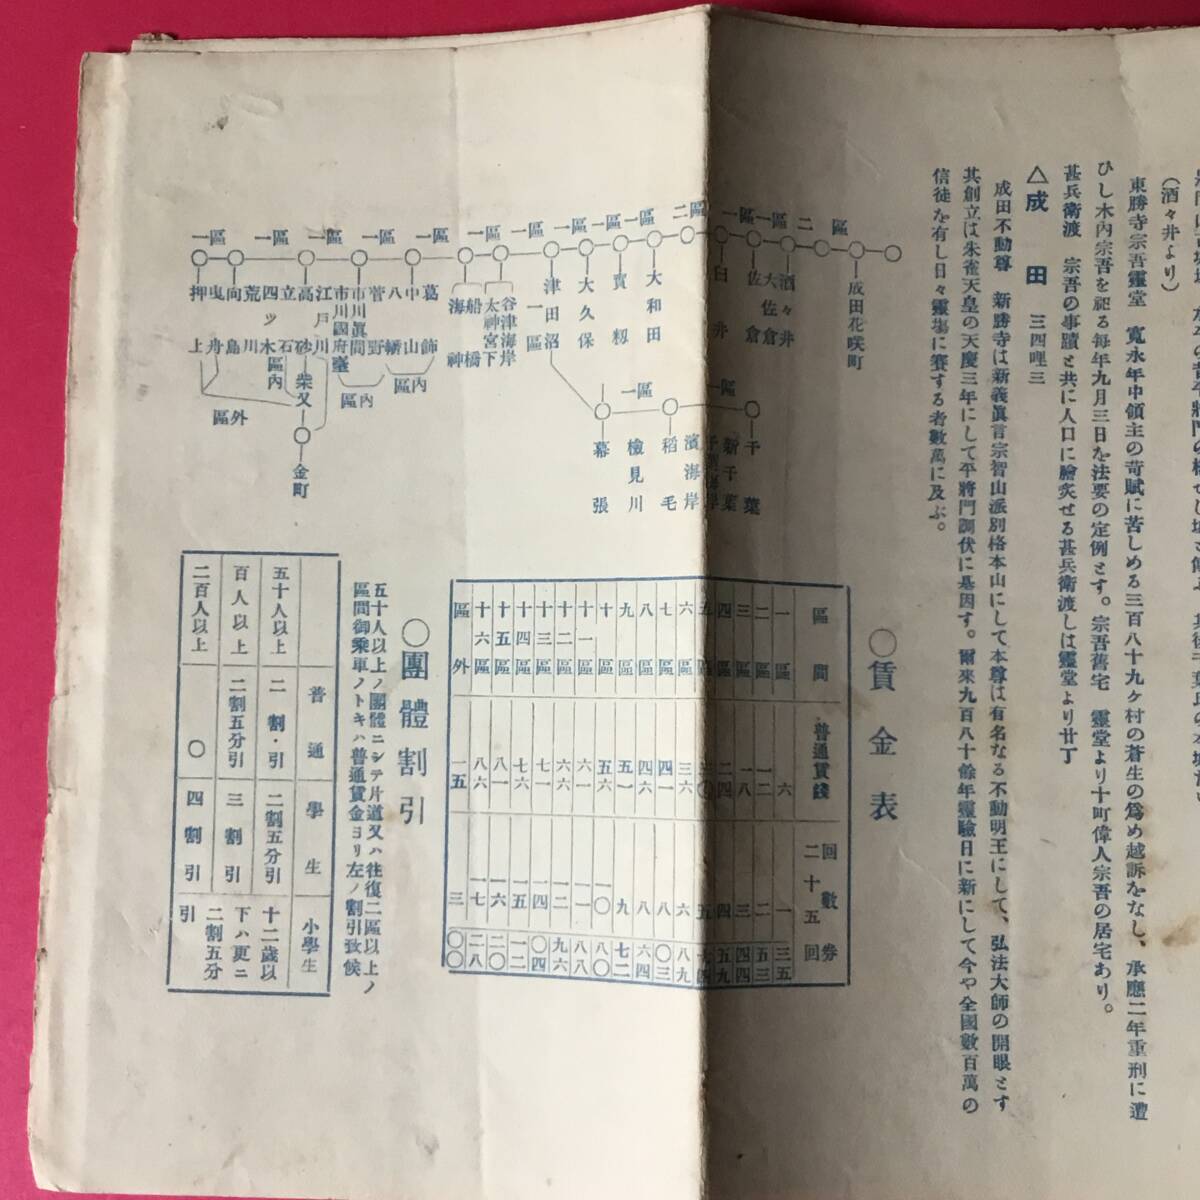 (酒々井より)
東勝寺宗吾靈堂 寬永年中領主の苛賦に苦しめる三百八十九ヶ村の蒼生の爲め越訴をなし、承應二年重刑に遭
ひし木内宗吾を祀る每年九月三日を法要の定例とす。宗吾舊宅 靈堂より十町偉人宗吾の居宅あり。
甚兵衞渡 宗吾の事蹟と共に人口に膾炙せる甚兵衞渡しは靈堂より廿丁
△成田 三四哩三
成田不動尊 新勝寺は新義眞言宗智山派別格本山にして本尊は有名なる不動明王にして、弘法大師の開眼とす
其創立は朱雀天皇の天慶三年にして平將門調伏に是因す。爾來九百八十餘年靈驗日に新にして今や全國數百萬の
信徒を有し日々靈場に賽する者數萬に及ぶ。
一區 一區 一區 一區 一區 一區 一區 一區 一區 一區 二區 一區 一區 二區
押上
曳舟
向島
荒川
四ツ木
立石
高砂
江戶川
市川國府臺
市川眞間
菅野
八幡
中山
葛飾
海神
船橋
太神宮下
谷津海岸
津田沼
大久保
實籾
大和田
臼井
佐倉
大佐倉
酒々井
成田花咲町
區外
區內
區內
區內
柴又
金町
一區
一區
一區
幕張
檢見川
稻毛
濱海岸
新千葉
千葉
○賃金表
區間 普通賃錢 回數券二十五回
一區 六 一 三五
二區 一二 二 五三
三區 一八 三 四四
四區 二四 四 五九
五區
六區 三六 六 八九
七區 四一 八 〇三
八區 四六 八 六四
九區 五一 九 七二
十區 五六 一〇 八〇
十一區 六一 一一 八八
十二區 六六 一二 九六
十三區 七一 一四 〇四
十四區 七六 一五 一二
十五區 八一 一六 二〇
十六區 八六 一七 二八
區外 一五 三 〇〇
○團體割引
五十人以上ノ團體ニシテ片道又ハ往復二區以上ノ
區間御乘車ノトキハ普通賃金ヨリ左ノ割引致候
普通 學生 小學生
五十人以上 二割引 二割五分引 十二歲以
百人以上 二割五分引 三割引 下ハ更ニ
二百人以上 〇 四割引 二割五分
引